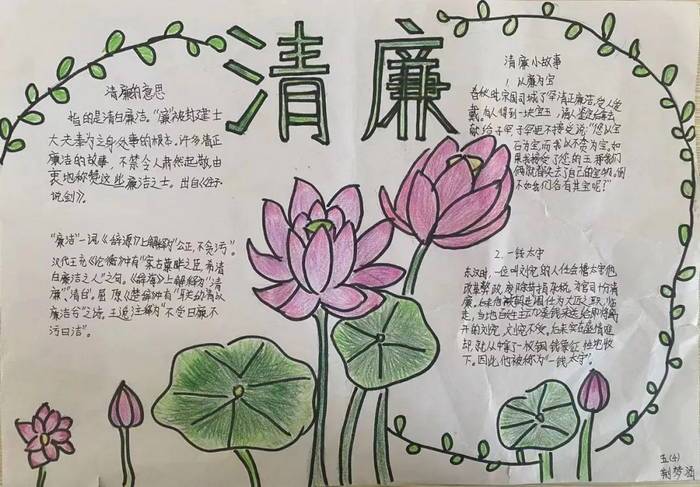 清廉
清廉的意思
指的是清白廉洁。"廉"被封建士
大夫奉为立身处事的根本。许多清正
廉洁的故事，不禁令人肃然起敬，由
衷地称赞这些廉洁之士。出自《庄子·
说剑》。
"廉洁"一词《辞源》上解释为"公正，不贪污"。
汉代王充《论衡》中有"案古篡畔之臣，希清
白廉洁之人"之句。《辞海》上解释为"清
廉"，"清白"。屈原《楚辞》中有"朕幼清以
廉洁兮"之语，王逸注释为"不受曰廉，不
污曰洁"。
清廉小故事
1. 以廉为宝
春秋时，宋国司城子罕清正廉洁，受人爱
戴。有人得到一块宝玉，请人鉴定后拿去
献给子罕，子罕拒不接受，说："您以宝
石为宝，而我以不贪为宝。如
果我接受了您的玉，那我们
俩就都失去了自己的宝物。倒
不如我们各有其宝呢？"
2. 一钱太守
东汉时，一位叫刘宠的人任会稽太守，他
改革弊政，废除苛捐杂税，为官司十分清
廉。后来他被朝廷调任为大匠之职，临
走，当地百姓主动凑钱来送给即将离
开的刘宠，刘宠不受。后来实在盛情难
却，就从中拿了一枚铜钱象征性地收
下。因此，他被称为"一钱太守"。
五(4)
荆梦涵